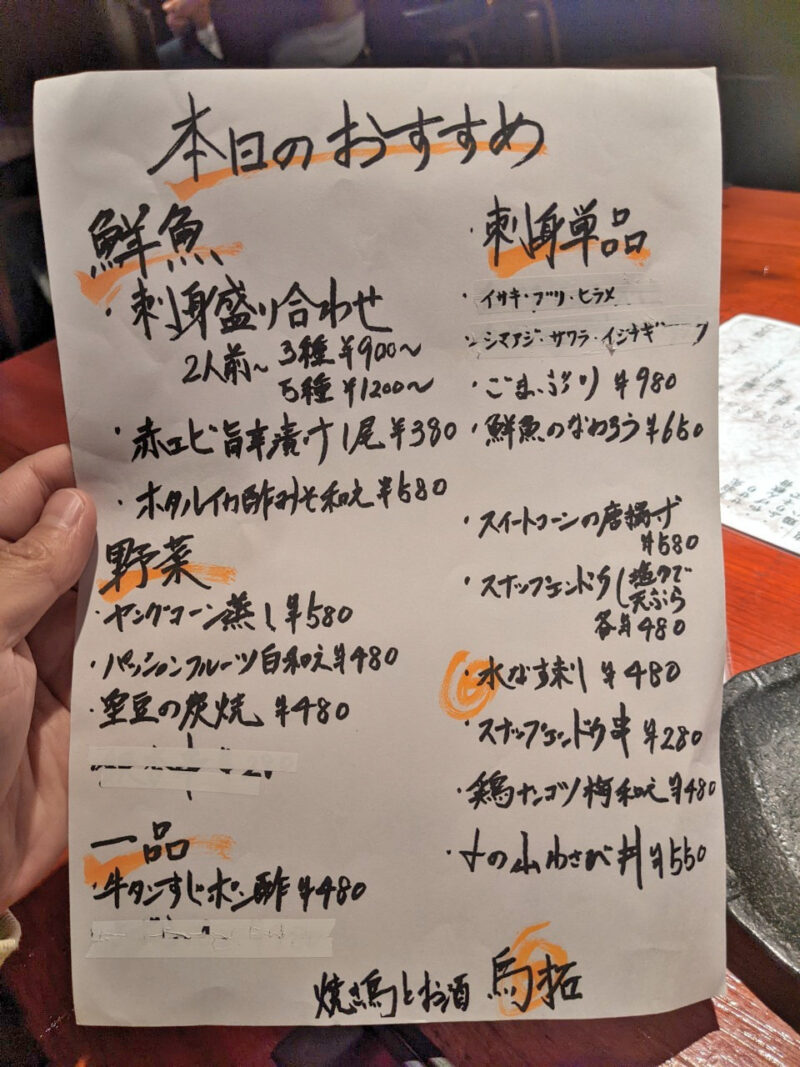 本日のおすすめ
鮮魚
・刺身盛り合わせ
2人前〜 3種 ¥900〜
5種 ¥1200〜
・赤エビ旨辛漬け 1尾 ¥380
・ホタルイカ酢みそ和え ¥580
野菜
・ヤングコーン蒸し ¥580
・パッションフルーツ白和え ¥480
・空豆の炭焼 ¥480
一品
・牛タンすじポン酢 ¥480
・刺身単品
・イサキ・ブリ・ヒラメ
シマアジ・サワラ・イシナギ
・ごまぶり ¥980
・鮮魚のなめろう ¥650
・スイートコーンの唐揚げ
¥580
・スナップエンドウ 塩ゆで
天ぷら
各¥480
・水なす刺し ¥480
・スナップエンドウ串 ¥280
・鶏ナンコツ梅和え ¥480
・の山わさび丼 ¥550
焼き鳥とお酒 鳥拓